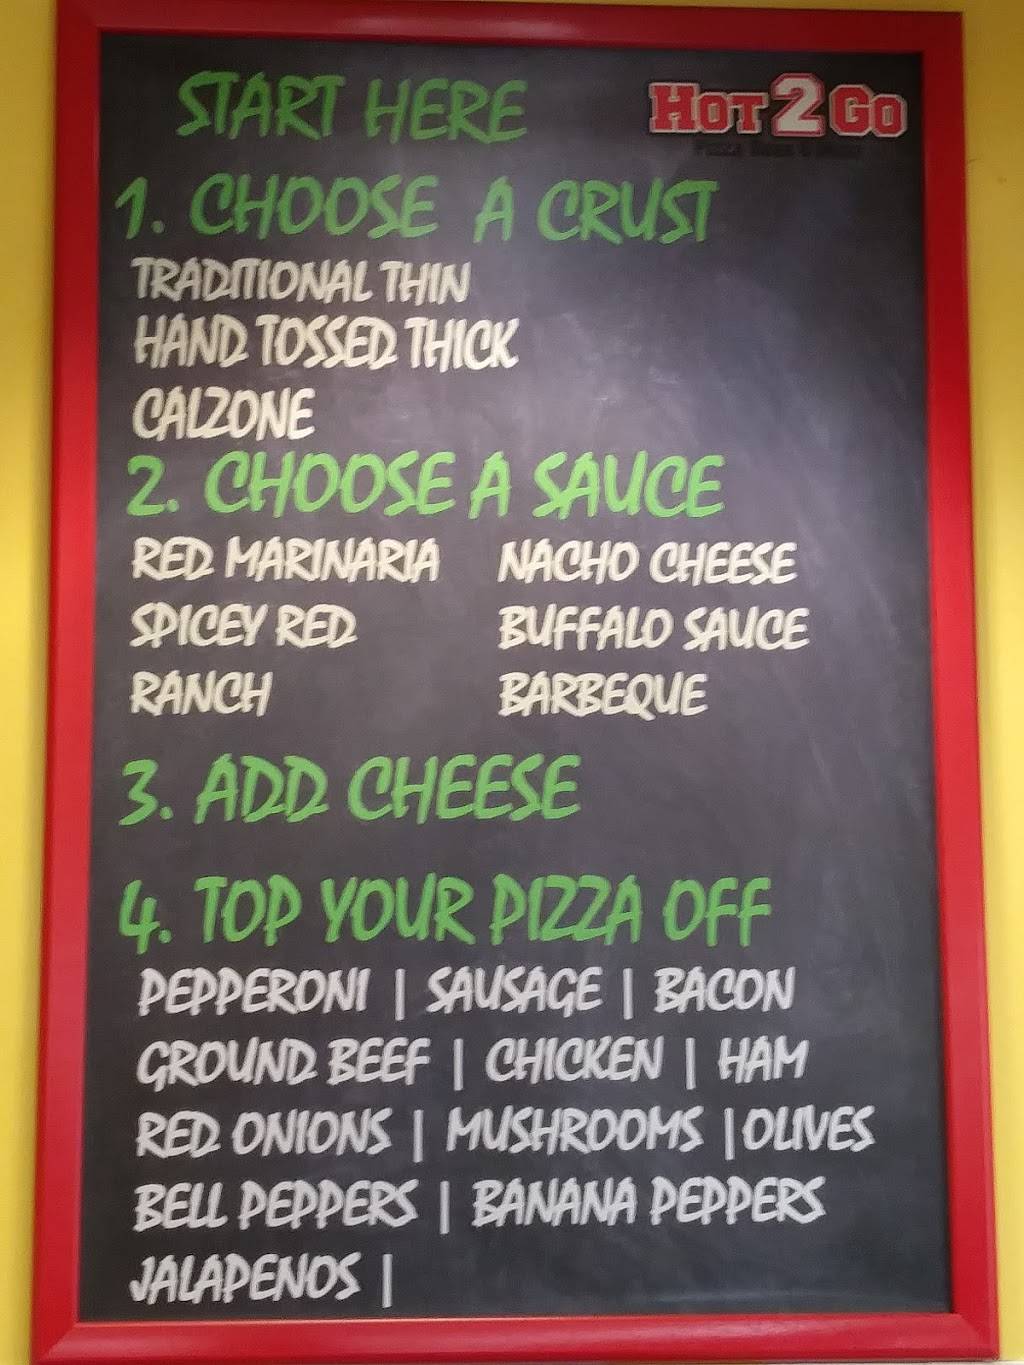 START HERE
HOT 2 GO
1. CHOOSE A CRUST
TRADITIONAL THIN
HAND TOSSED THICK
CALZONE
2. CHOOSE A SAUCE
RED MARINARIA NACHO CHEESE
SPICEY RED BUFFALO SAUCE
RANCH BARBEQUE
3. ADD CHEESE
4. TOP YOUR PIZZA OFF
PEPPERONI | SAUSAGE | BACON
GROUND BEEF | CHICKEN | HAM
RED ONIONS | MUSHROOMS | OLIVES
BELL PEPPERS | BANANA PEPPERS
JALAPENOS |